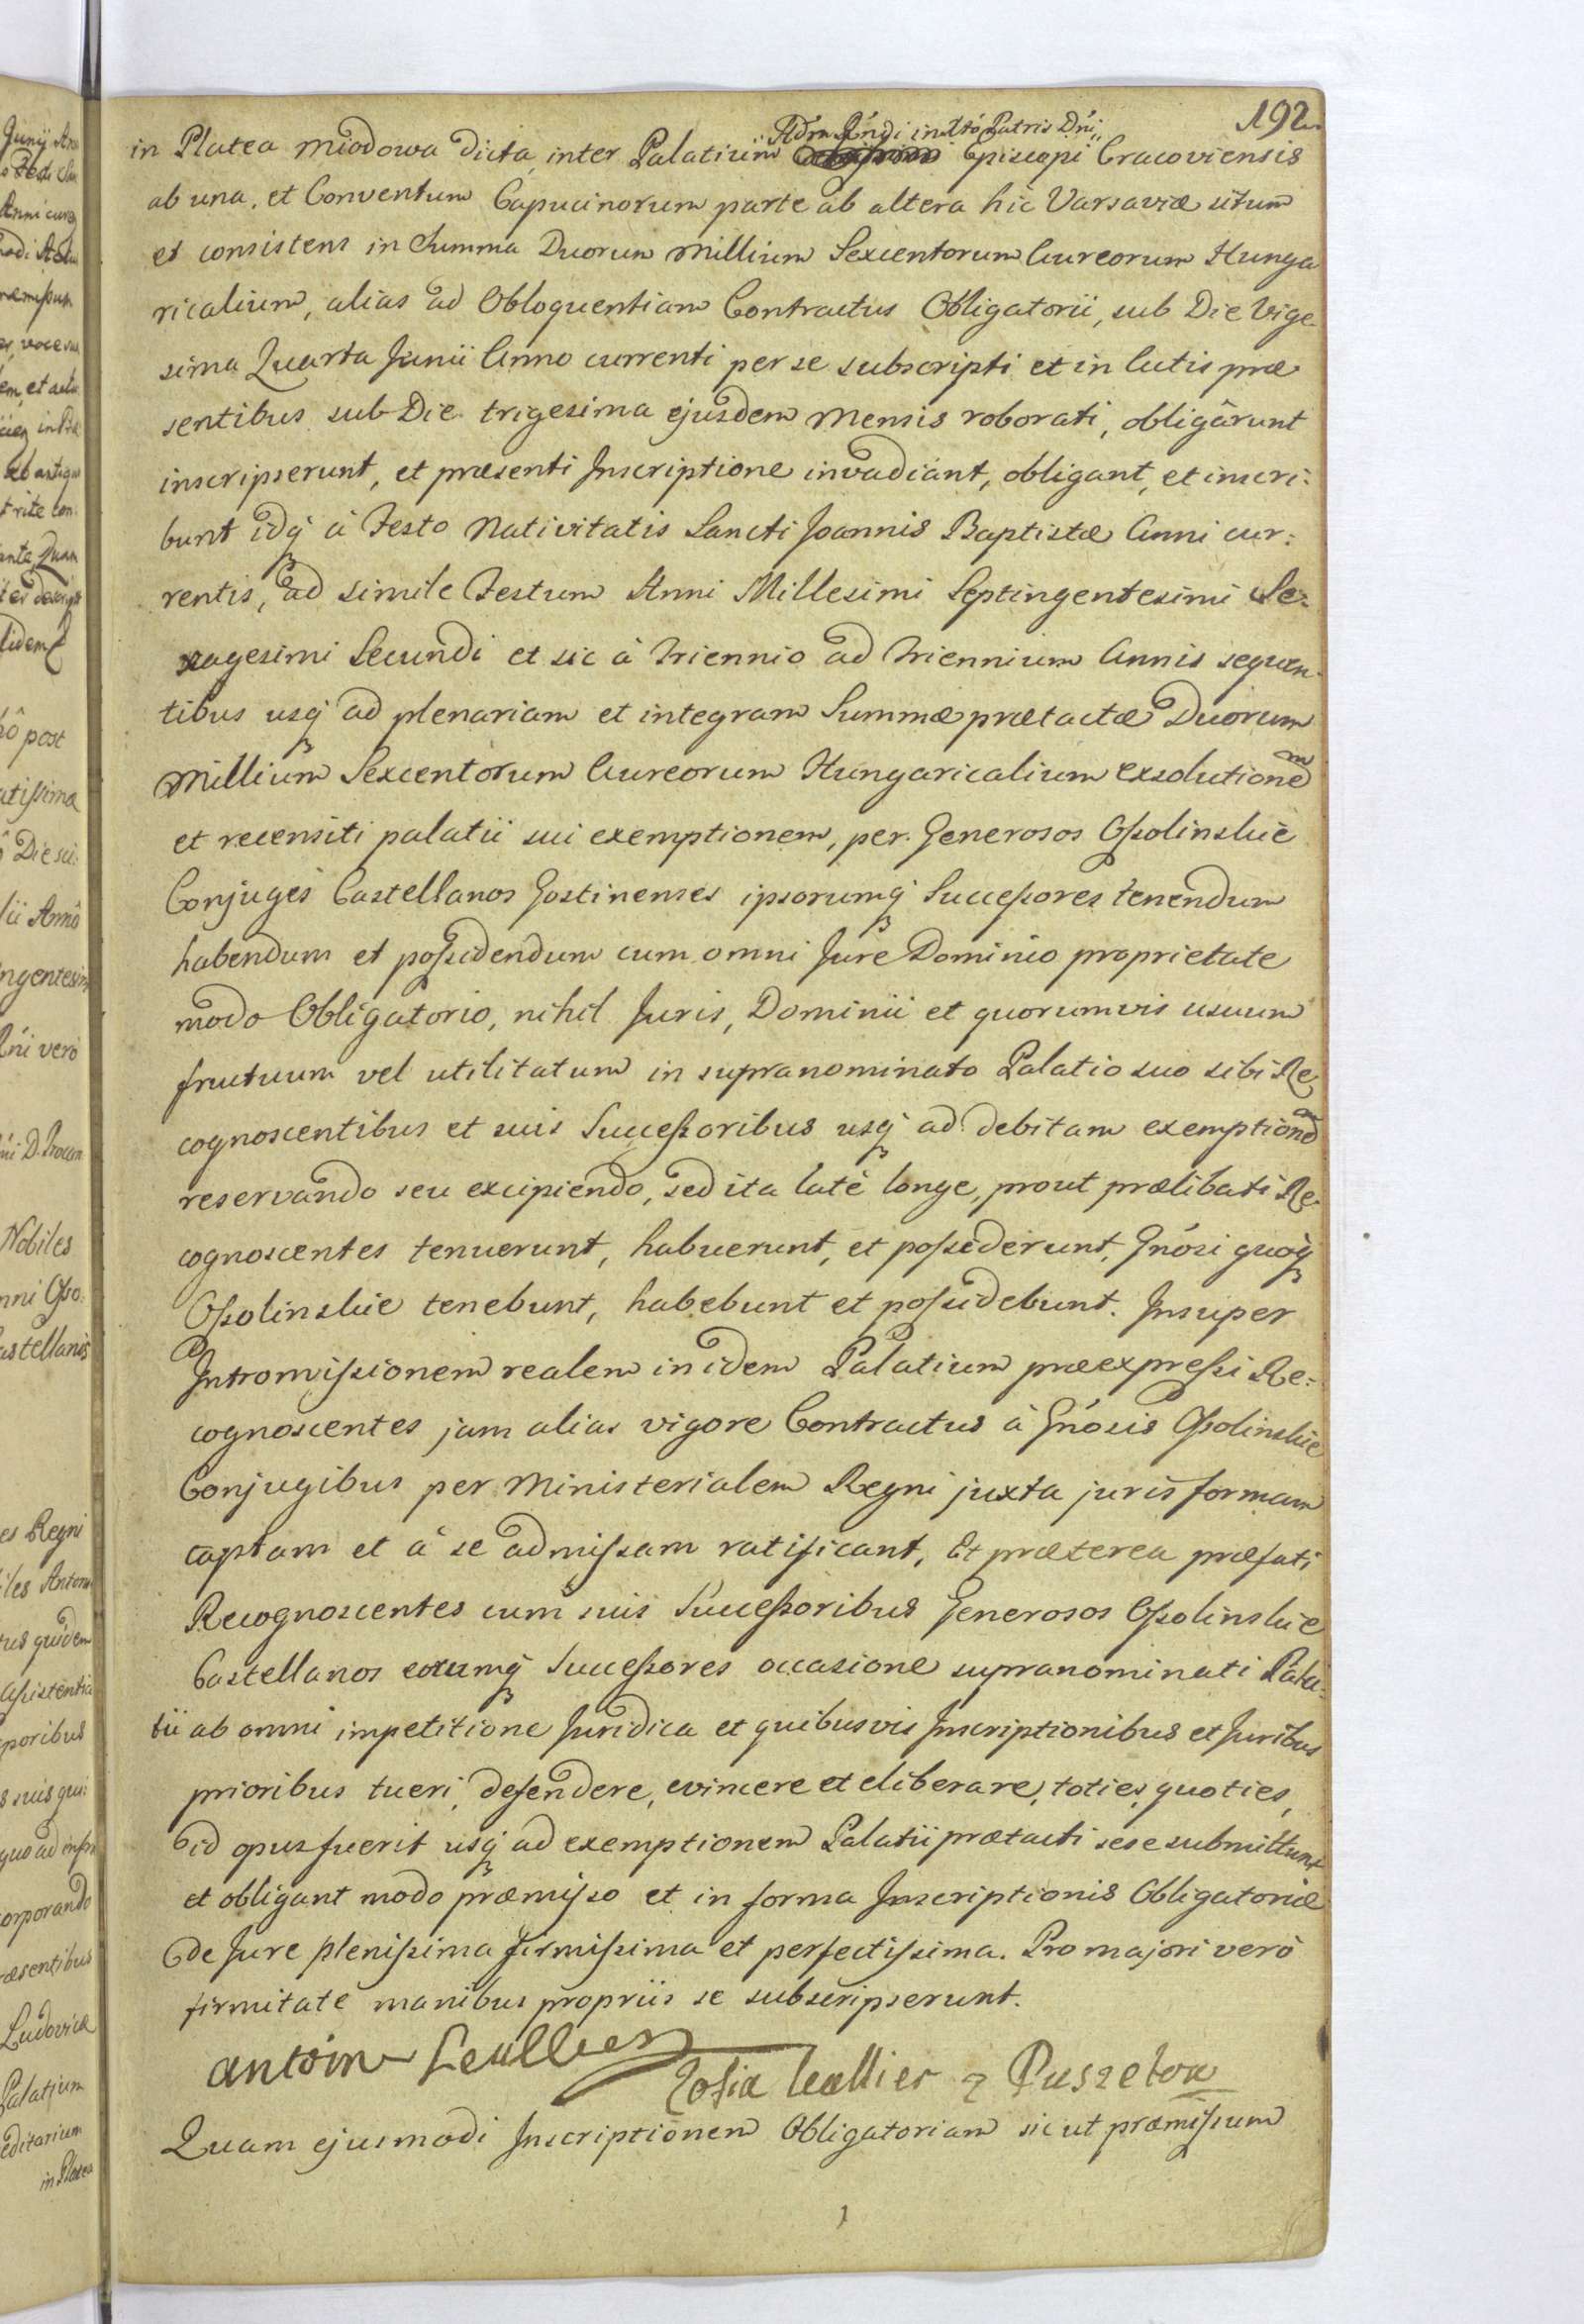 192
Adm Rńdi in Xto Patris Dńi
in Platea Miodowa dicta, inter Palatium Episcopi Cracoviensis
ab una, et Conventum Capucinorum parte ab altera hic Varsaviæ situm
et consistens in Summa Duorum Millium Sexcentorum Aureorum Hunga
ricalium, alias ad Obloquentiam Contractus Obligatorii, sub Die Vige
sima Quarta Junii Anno currenti per se subscripti et in Actis præ
sentibus sub Die trigesima ejusdem Mensis roborati, obligârunt
inscripserunt, et præsenti Inscriptione invadiant, obligant, et inscri:
bunt idq̃ à Festo Nativitatis Sancti Joannis Baptistæ Anni cur:
rentis, ad simile Festum Anni Millesimi Septingentesimi Se:
xagesimi Secundi et sic à Triennio ad Triennium Annis sequen
tibus usq̃ ad plenariam et integram Summæ prætactæ Duorum
Millium Sexcentorum Aureorum Hungaricalium exsolutionem
et recensiti palatii sui exemptionem, per Generosos Ossolinskie
Conjuges Castellanos Gostinenses ipsorumq̃ Successores tenendum
habendum et possidendum cum omni Jure Dominio proprietate
modo Obligatorio, nihil Juris, Dominii et quorumvis usuum
fructuum vel utilitatum in supranominato Palatio suo sibi Re
cognoscentibus et suis Successoribus usq̃ ad debitam exemptionem
reservando seu excipiendo, sed ita latè longe, prout prælibati Re
cognoscentes tenuerunt, habuerunt, et possederunt, Gńosi quoq̃
Ossolinskie tenebunt, habebunt et possidebunt. Insuper
Intromissionem realem in idem Palatium præexpressi Re:
cognoscentes jam alias vigore Contractus à Gńosis Ossolinskie
Conjugibus per Ministerialem Regni juxta juris formam
captam et à se admissam ratificant, Et præterea præfati
Recognoscentes cum suis Successoribus Generosos Ossolinskie
Castellanos eorumq̃ Successores occasione supranominati Pala:
tii ab omni impetitione Juridica et quibusvis Inscriptionibus et Juribus
prioribus tueri, defendere, evincere et eliberare, toties, quoties,
id opus fuerit usq̃ ad exemptionem Palatii prætacti sese submittunt
et obligant modo præmisso et in forma Inscriptionis Obligatoriæ
de Jure plenissima firmissima et perfectissima. Pro majori verò
firmitate manibus propriis se subscripserunt.
antoin Leullier
Zofia leullier z Puszetow
Quam ejusmodi Inscriptionem Obligatoriam sic ut præmissum